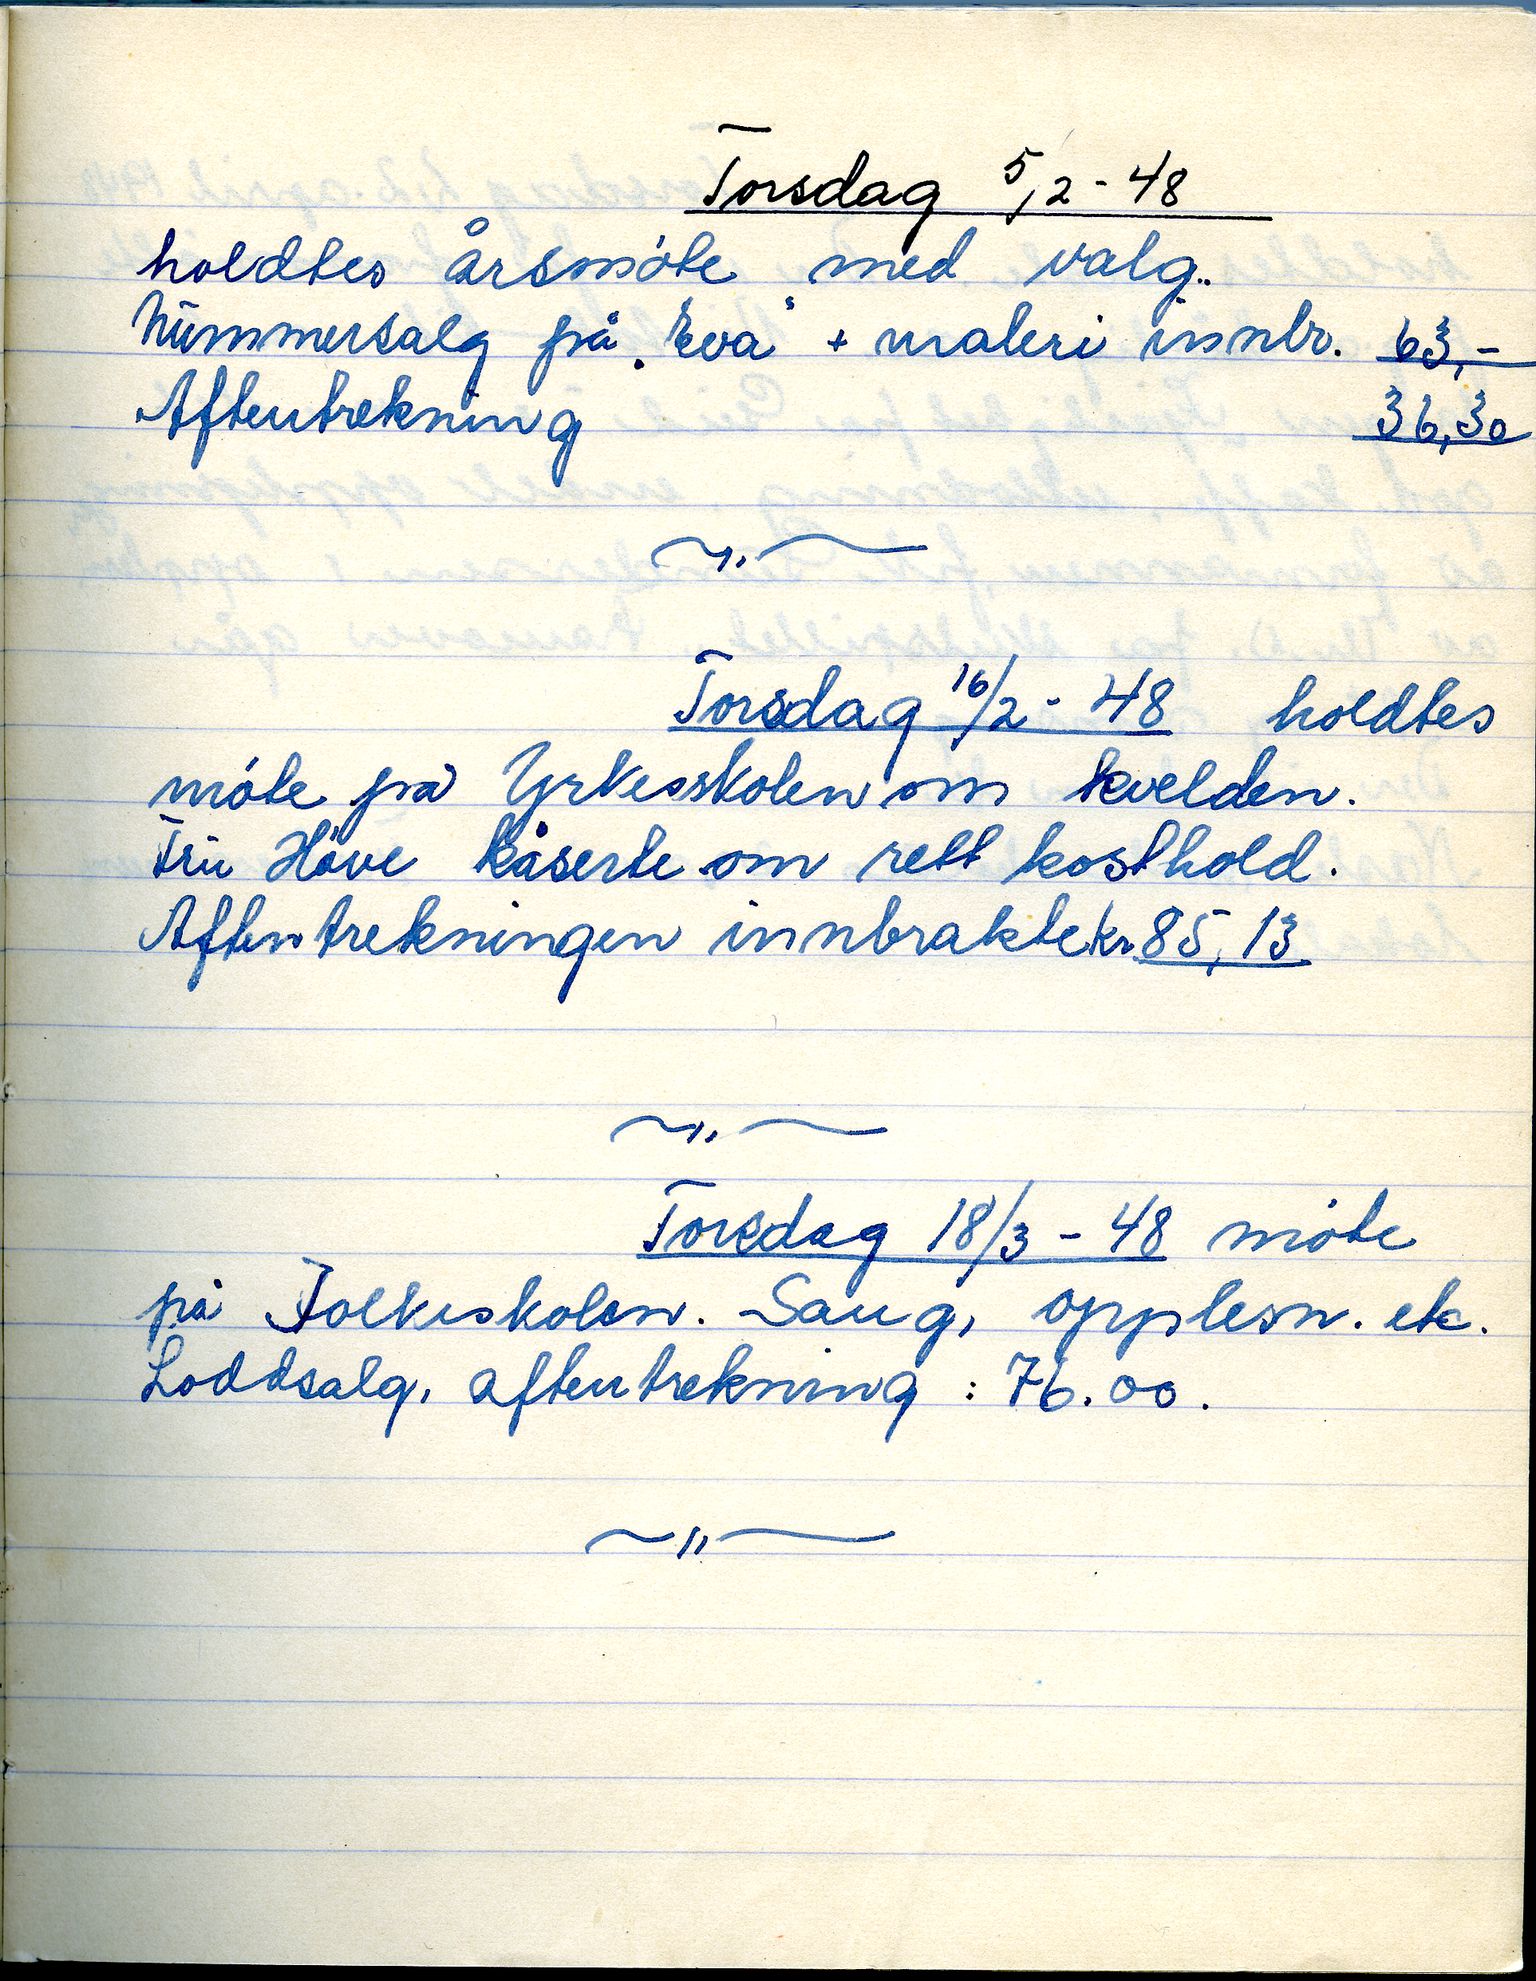 Torsdag 5/2 - 48
holdtes årsmöte med valg.
Nummersalg på „Eva" + maleri innbr. 63,-
Aftentrekning 36,30
Torsdag 16/2 - 48 holdtes
möte på Yrkesskolen om kvelden.
Fru Höve kåserte om rett kosthold.
Aftentrekningen innbrakte kr. 85,13
Torsdag 18/3 - 48 möte
på Folkeskolen. Sang, opplesn. etc.
Loddsalg, aftentrekning : 76.00.